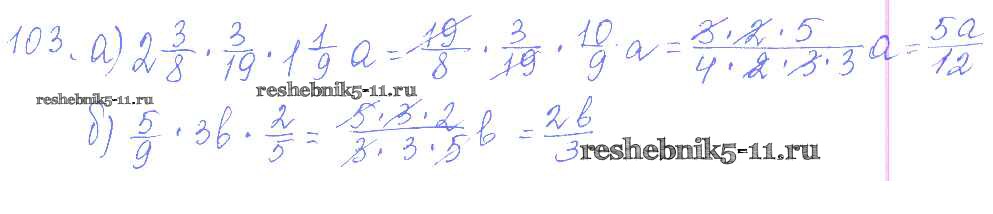 103. а) 2 3/8 · 3/19 · 1 1/9 a = 19/8 · 3/19 · 10/9 a = 3 · 2 · 5 / 4 · 2 · 3 · 3 a = 5a/12
reshebnik5-11.ru reshebnik5-11.ru
б) 5/9 · 3b · 2/5 = 5 · 3 · 2 / 3 · 3 · 5 b = 2b/3
reshebnik5-11.ru